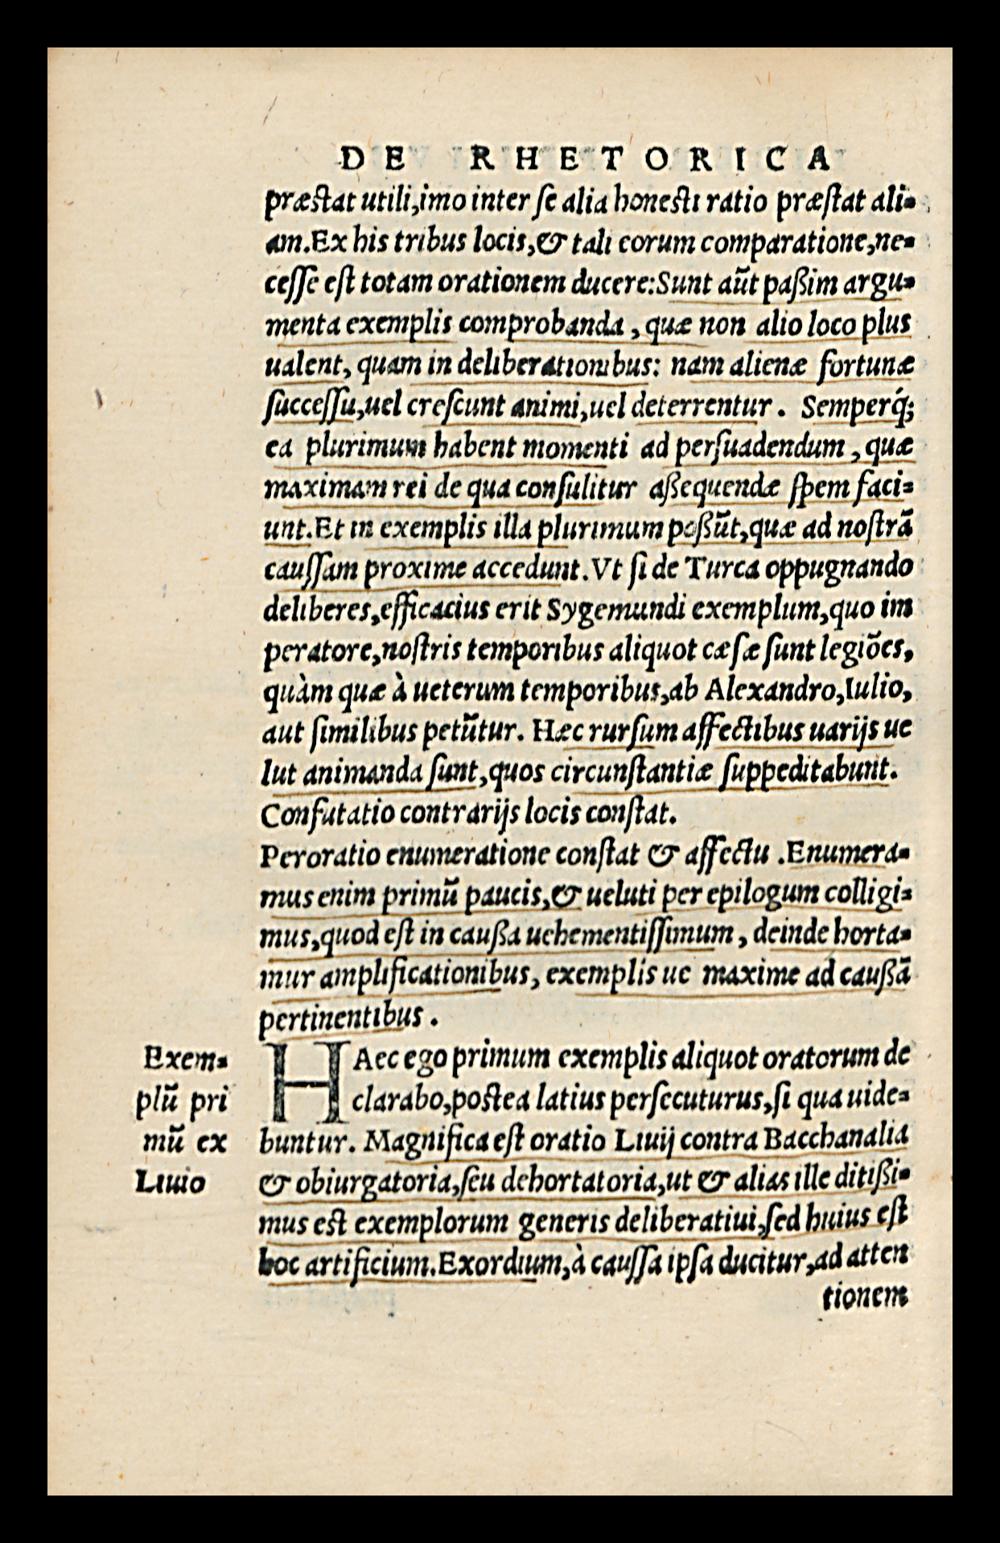 DE RHETORICA
præstat utili,imo inter se alia honesti ratio præstat ali-
am.Ex his tribus locis,& tali eorum comparatione,ne-
cesse est totam orationem ducere:Sunt aũt paßim argu-
menta exemplis comprobanda , quæ non alio loco plus
ualent, quam in deliberationibus: nam alienæ fortunæ
successu,uel crescunt animi,uel deterrentur . Semperq́;
ea plurimum habent momenti ad persuadendum , quæ
maximam rei de qua consulitur aßequendæ spem faci-
unt.Et in exemplis illa plurimum poßũt,quæ ad nostrã
caussam proxime accedunt.Vt si de Turca oppugnando
deliberes,efficacius erit Sygemundi exemplum,quo im
peratore,nostris temporibus aliquot cæsæ sunt legiões,
quàm quæ à ueterum temporibus,ab Alexandro,Iulio,
aut similibus petũtur. Hæc rursum affectibus uarijs ue
lut animanda sunt,quos circunstantiæ suppeditabunt.
Confutatio contrarijs locis constat.
Peroratio enumeratione constat & affectu .Enumera-
mus enim primũ paucis,& ueluti per epilogum colligi-
mus,quod est in caußa uehementissimum , deinde horta-
mur amplificationibus, exemplis ue maxime ad caußã
pertinentibus .
Exem-
plũ pri
mũ ex
Liuio
HAec ego primum exemplis aliquot oratorum de
clarabo,postea latius persecuturus,si qua uide-
buntur. Magnifica est oratio Liuij contra Bacchanalia
& obiurgatoria,seu dehortatoria,ut & alias ille ditißi-
mus est exemplorum generis deliberatiui,sed huius est
hoc artificium.Exordium,à caussa ipsa ducitur,ad atten
tionem